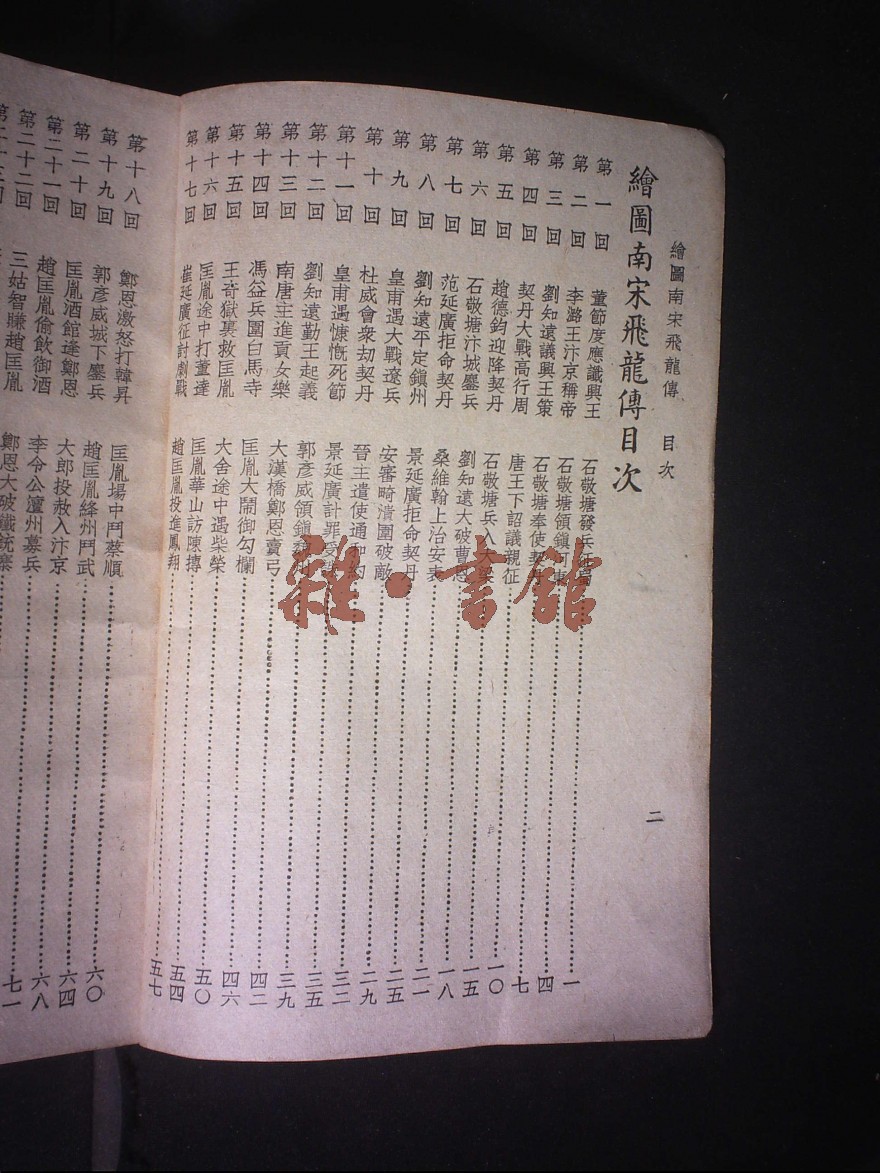 繪圖南宋飛龍傳 目次
二
繪圖南宋飛龍傳目次
第一回 董節度應讖興王 石敬塘發兵 一
第二回 李潞王汴京稱帝 石敬塘領鎮河東 四
第三回 劉知遠議興王策 石敬塘奉使契丹 七
第四回 契丹大戰高行周 唐王下詔議親征 一〇
第五回 趙德鈞迎降契丹 石敬塘兵入大梁 一五
第六回 石敬塘汴城鏖兵 劉知遠大破曹 一八
第七回 范延廣拒命契丹 桑維翰上治安表 二一
第八回 劉知遠平定鎮州 景延廣拒命契丹 二五
第九回 皇甫遇大戰遼兵 安審畸潰圍破敵 二九
第十回 杜威會衆刧契丹 晉主遣使通和約 三二
第十一回 皇甫遇慷慨死節 景延廣計罪受 三五
第十二回 劉知遠勤王起義 郭彥威領鎮 三九
第十三回 南唐主進貢女樂 大漢橋鄭恩賣弓 四二
第十四回 馮益兵圍白馬寺 匡胤大鬧御勾欄 四六
第十五回 王奇獄裏救匡胤 大舍途中遇柴榮 五〇
第十六回 匡胤途中打董達 匡胤華山訪陳摶 五四
第十七回 崔延廣征討劇戰 趙匡胤投進鳳翔 五七
第十八回 鄭恩激怒打韓昇 匡胤場中鬥蔡順 六〇
第十九回 郭彥威城下鏖兵 趙匡胤絳州鬥武 六四
第二十回 匡胤酒館逢鄭恩 大郎投赦入汴京 六八
第二十一回 趙匡胤偷飲御酒 李令公澶州募兵 七一
第二十二回 三姑智賺趙匡胤 鄭恩大破
雜·書館